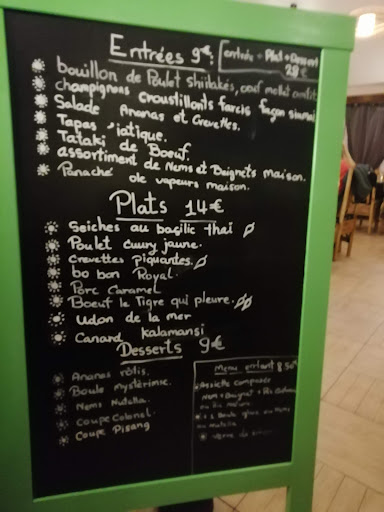 Entrées 9€:
entrée + Plat + Dessert
28€
bouillon de Poulet shiitakés, oeuf mollet confit
champignons croustillants farcis façon
Salade Ananas et Crevettes.
Tapas 'iatique.
Tataki de Boeuf.
assortiment de Nems et Beignets maison.
Panaché de vapeurs maison.
Plats 14€
Seiches au basilic thaï
Poulet cuury jaune.
Crevettes piquantes.
bo ban Royal.
Porc Caramel
Boeuf le Tigre qui pleure.
udon de la mer
Canard kalamansi
Desserts 9€
Ananas rôtis.
Boule mystérieuse.
Nems Nutella.
Coupe Colonel.
Coupe Pisang
Menu enfant 8.50€
Assiette composée
Nem + Beignet + Riz
1 Boule glace ou Nems
au nutella